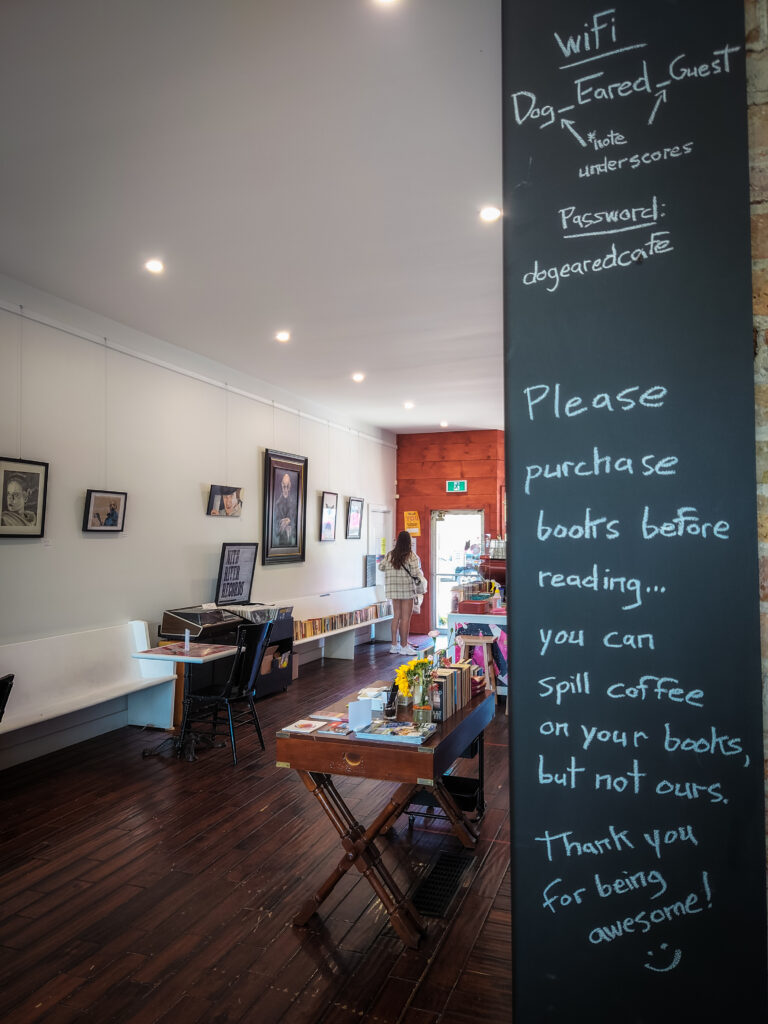 wifi
Dog_Eared_Guest
*note
underscores
Password:
dogearedcafe
Please
purchase
books before
reading...
you can
spill coffee
on your books,
but not ours.
Thank you
for being
awesome!
NITE
OWL
RECORDS